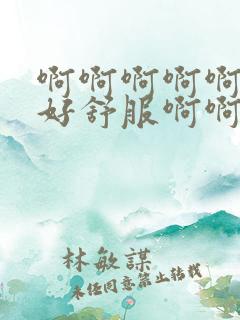 啊啊啊啊啊
好舒服啊啊
林敏謀
未经同意禁止转载